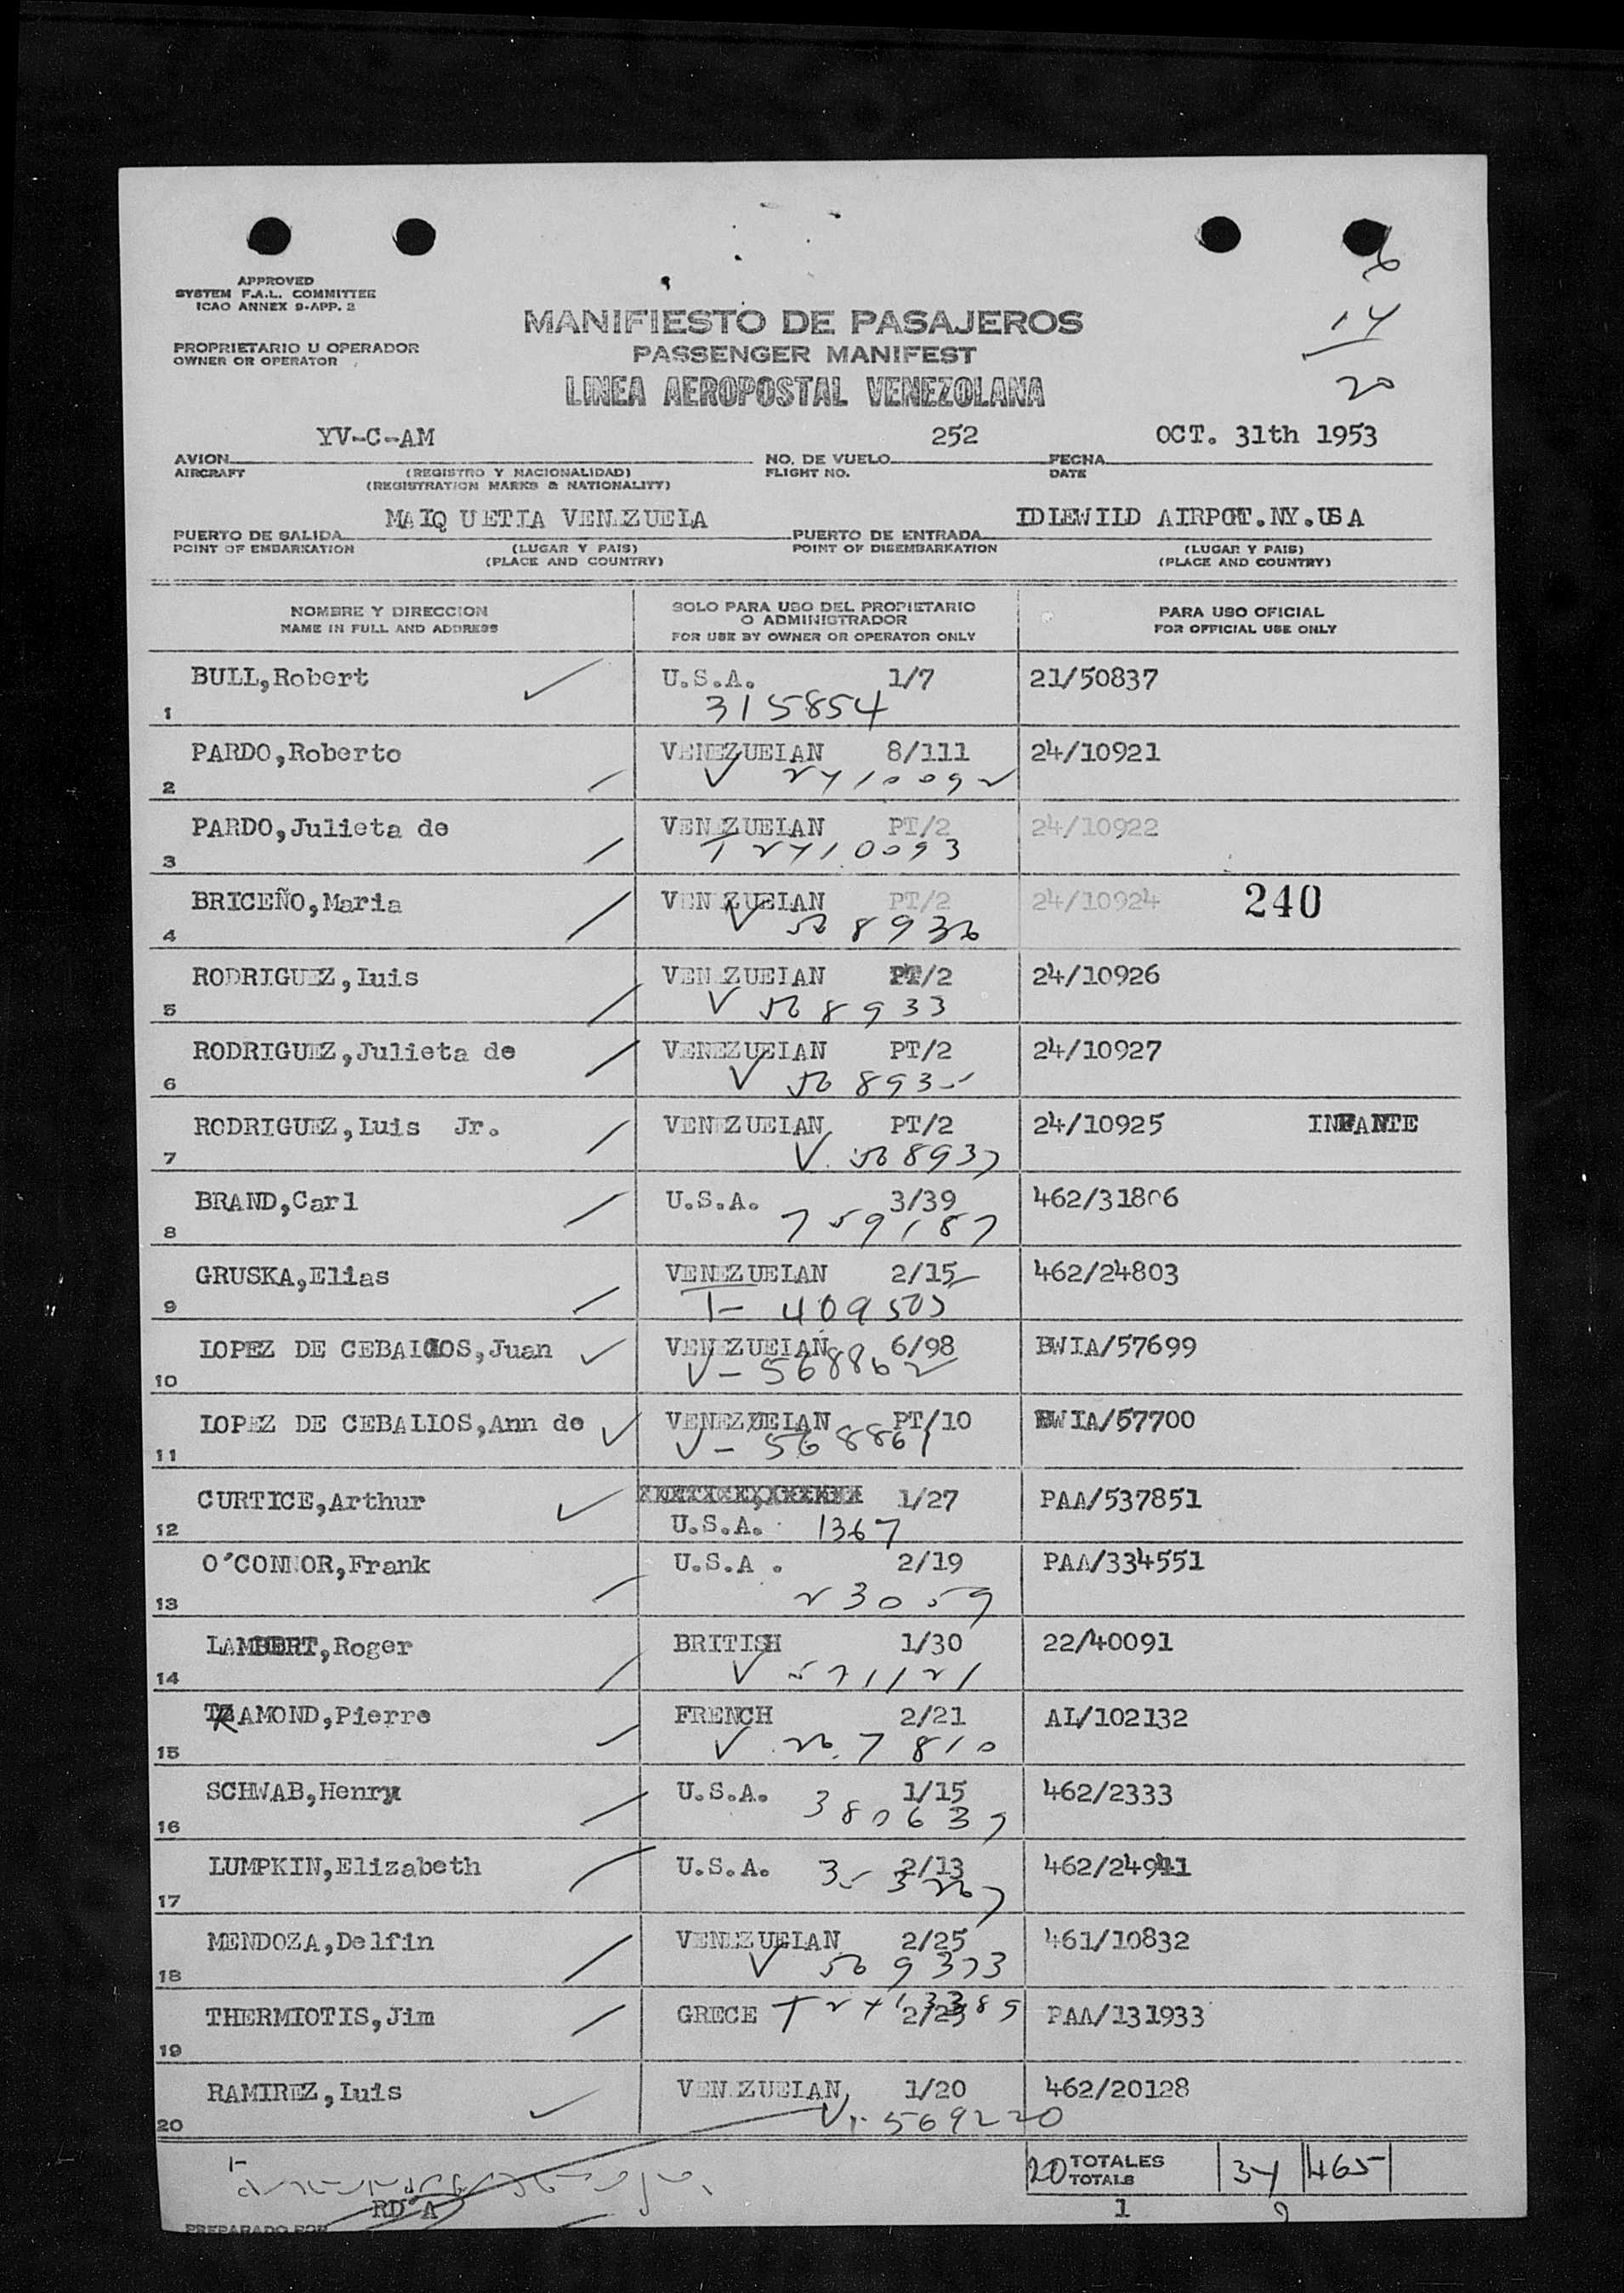 6
14
20
APPROVED
SYSTEM F.A.L. COMMITTEE
ICAO ANNEX 9-APP. 2
MANIFIESTO DE PASAJEROS
PROPRIETARIO U OPERADOR
OWNER OR OPERATOR
PASSENGER MANIFEST
LINEA AEROPOSTAL VENEZOLANA
YV-C-AM 252 OCT. 31th 1953
AVION NO. DE VUELO FECHA
AIRCRAFT (REGISTRO Y NACIONALIDAD) FLIGHT NO. DATE
(REGISTRATION MARKS & NATIONALITY)
MAIQUETIA VENEZUELA IDLEWILD AIRPORT.NY.USA
PUERTO DE SALIDA PUERTO DE ENTRADA
POINT OF EMBARKATION (LUGAR Y PAIS) POINT OF DISEMBARKATION (LUGAR Y PAIS)
(PLACE AND COUNTRY) (PLACE AND COUNTRY)
NOMBRE Y DIRECCION SOLO PARA USO DEL PROPIETARIO PARA USO OFICIAL
O ADMINISTRADOR
NAME IN FULL AND ADDRESS FOR USE BY OWNER OR OPERATOR ONLY FOR OFFICIAL USE ONLY
BULL,Robert U.S.A. 1/7 21/50837
1 315854
PARDO,Roberto VENEZUELAN 8/111 24/10921
2 V 2410092
PARDO,Julieta de VENEZUELAN PT/2 24/10922
3 T 2410093
BRICEÑO,Maria VENEZUELAN PT/2 24/10924 240
4 V 568936
RODRIGUEZ,Luis VENEZUELAN PT/2 24/10926
5 V 568933
RODRIGUEZ,Julieta de VENEZUELAN PT/2 24/10927
6 V 568935
RODRIGUEZ,Luis Jr. VENEZUELAN PT/2 24/10925 INFANTE
7 V 568937
BRAND,Carl U.S.A. 3/39 462/31806
8 759187
GRUSKA,Elias VENEZUELAN 2/15 462/24803
9 T- 409505
LOPEZ DE CEBALLOS,Juan VENEZUELAN 6/98 BWIA/57699
10 V-568862
LOPEZ DE CEBALLOS,Ann de VENEZUELAN PT/10 BWIA/57700
11 V-568861
CURTICE,Arthur 1/27 PAA/537851
12 U.S.A. 1367
O'CONNOR,Frank U.S.A. 2/19 PAA/334551
13 23059
LAMBERT,Roger BRITISH 1/30 22/40091
14 V 571121
TRAMOND,Pierre FRENCH 2/21 AL/102132
15 V 267810
SCHWAB,Henry U.S.A. 1/15 462/2333
16 380639
LUMPKIN,Elizabeth U.S.A. 2/13 462/24941
17 353267
MENDOZA,Delfin VENEZUELAN 2/25 461/10832
18 V 569373
THERMIOTIS,Jim GRECE 2/23 PAA/131933
19
RAMIREZ,Luis VENEZUELAN 1/20 462/20128
20 V-569220
20 TOTALES 34 465
TOTALS
RD A 1
PREPARADO POR